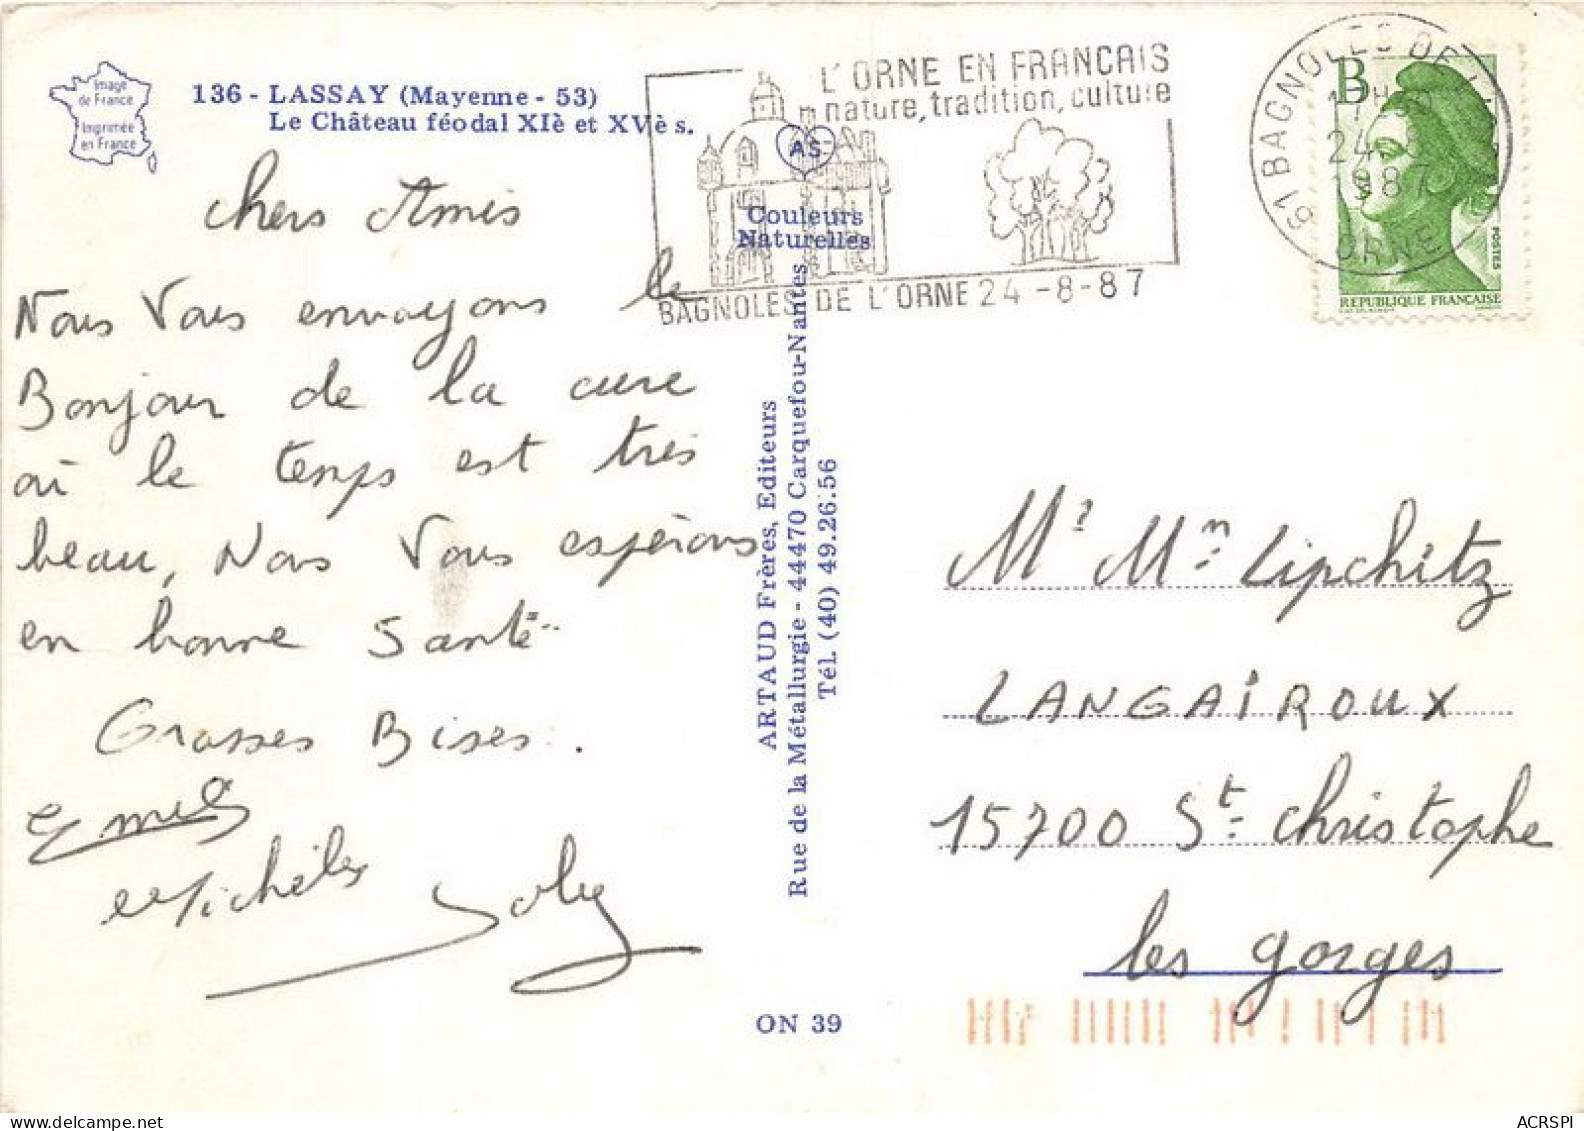 Image
de France
Imprimée
en France
136 - LASSAY (Mayenne - 53)
Le Château féodal XIè et XVè s.
chers Amis
Nous Vous envoyons le
Bonjour de la cure
où le temps est très
beau, Nous Vous espérons
en bonne Santé
Grosses Bises.
Michèle
AS
Couleurs
Naturelles
ARTAUD Frères, Editeurs
Rue de la Métallurgie - 44470 Carquefou-Nantes
Tél. (40) 49.26.56
ON 39
L'ORNE EN FRANCAIS
nature, tradition, culture
BAGNOLES DE L'ORNE 24 -8-87
61 BAGNOLES DE L'
24 -8
1987
ORNE
B
POSTES
REPUBLIQUE FRANÇAISE
Mr Mme Lipchitz
LANGAIROUX
15700 St. Christophe
les gorges
ACRSPI